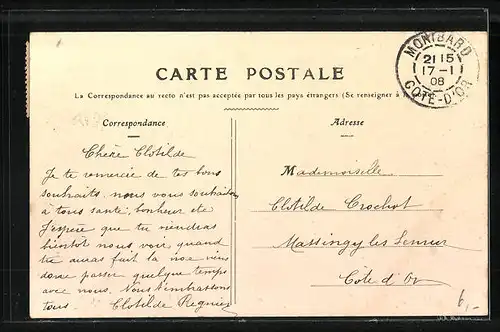 MONTBARD
21 15
17 - 1
08
COTE-D'OR
CARTE POSTALE
La Correspondance au recto n'est pas acceptée par tous les pays étrangers (Se renseigner à
Correspondance
Chère Clotilde
Je te remercie de tes bons
souhaits nous vous souhaitons
à tous santé, bonheur etc
J'espère que tu viendras
bientôt nous voir, quand
tu auras fait la noce viens
donc passer quelque temps
avec nous. Nous t'embrassons
tous Clotilde Regnier
Adresse
Mademoiselle
Clotilde Crochot
Massingy les Semur
Côte d'Or
6,-